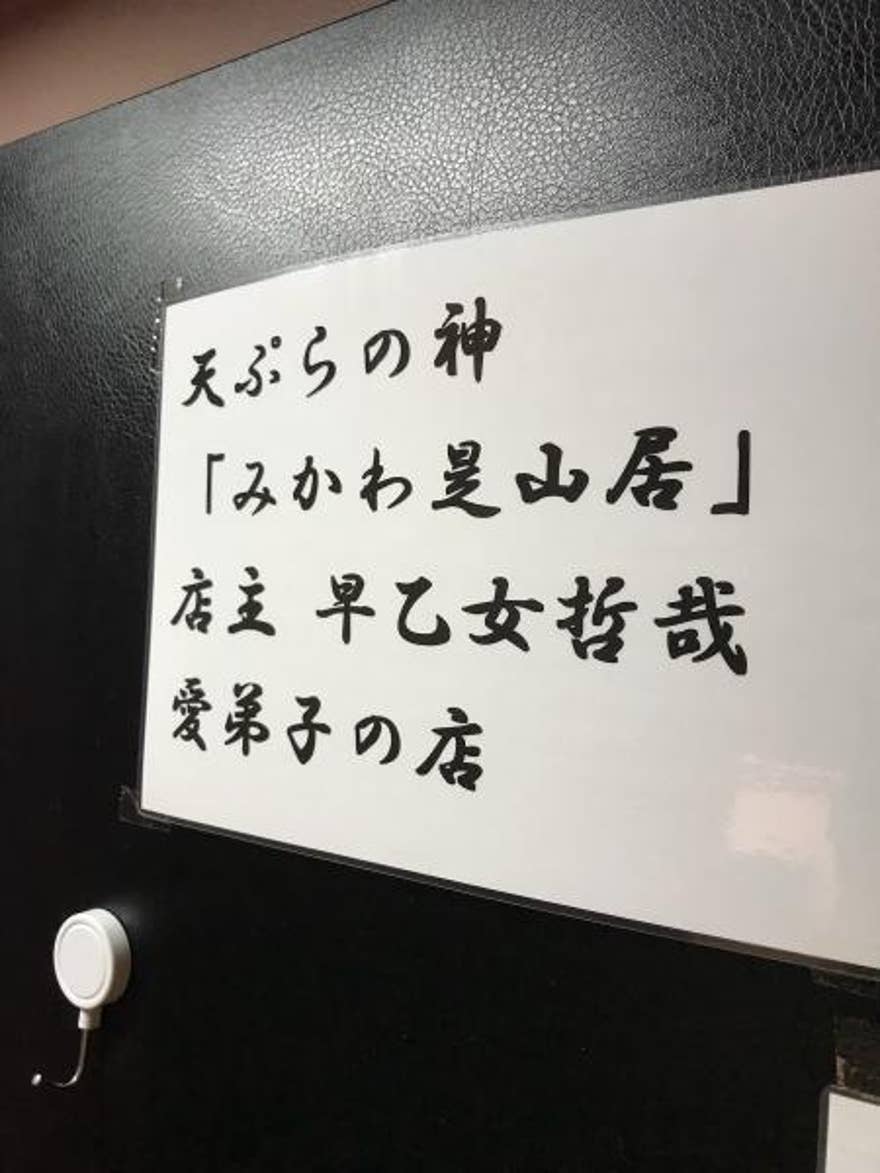 天ぷらの神
「みかわ是山居」
店主 早乙女哲哉
愛弟子の店